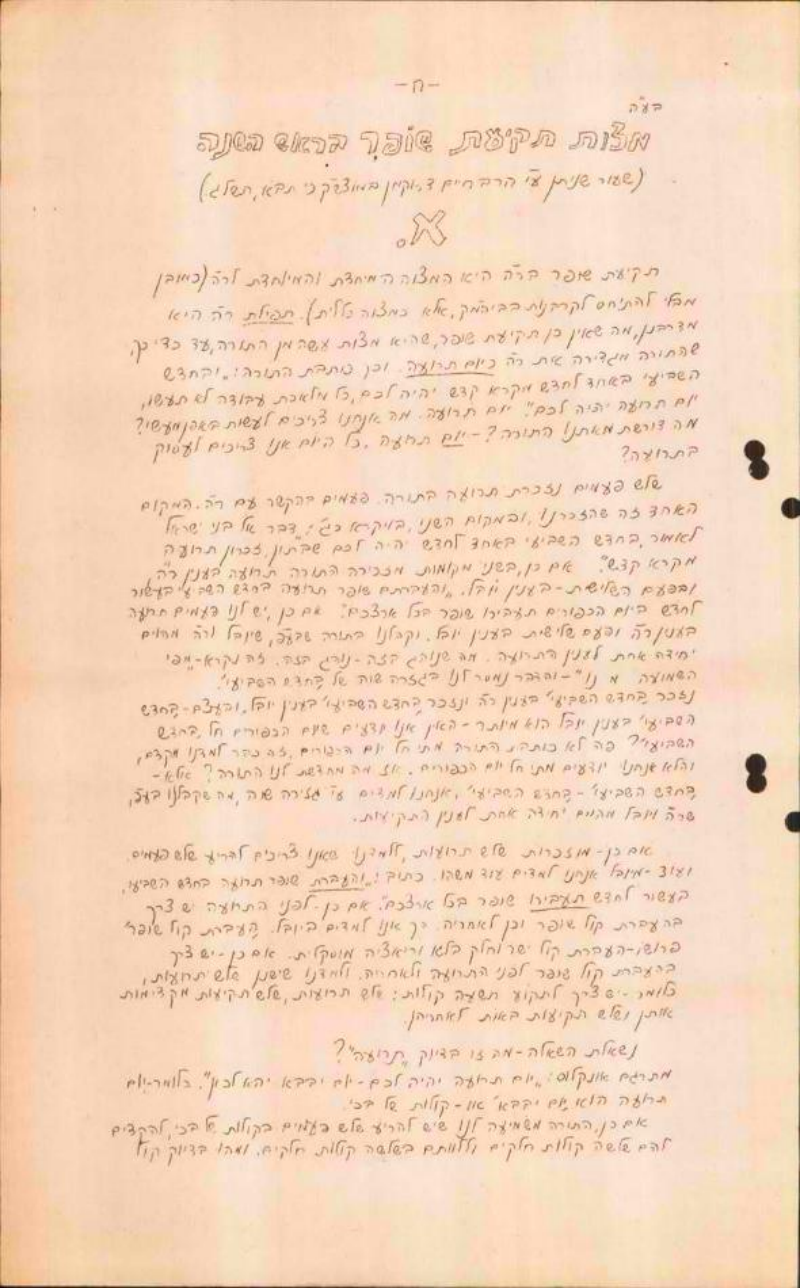 -ח-
בע"ה
מצוות תקיעת שופר בראש השנה
(שעור שניתן ע"י הרב חיים דרוקמן במוצש"ק כי תבא, תשל"ג)
א.
תקיעת שופר בר"ה היא המצוה המיוחדת והמיוחדת לר"ה (כמובן
מבלי להתיחס לקרבנות בביהמ"ק, אלא כמצוה כללית). תפילת ר"ה היא
מדרבנן, מה שאין כן תקיעת שופר, שהיא מצות עשה מן התורה, עד כדי כך,
שהתורה מגדירה את ר"ה כיום תרועה. וכן כותבת התורה: "ובחדש
השביעי באחד לחדש מקרא קדש יהיה לכם, כל מלאכת עבודה לא תעשו,
יום תרועה יהיה לכם". יום תרועה. מה אנחנו צריכים לעשות
מה דורשת מאתנו התורה? - יום תרועה, כל היום אנו צריכים לעסוק
בתרועה?
שלש פעמים נזכרת תרועה בתורה. פעמים בהקשר עם ר"ה. המקום
האחד זה שהזכרנו, ובמקום השני, בויקרא כ"ג: "דבר אל בני ישראל
לאמר, בחדש השביעי באחד לחדש יהיה לכם שבתון, זכרון תרועה
מקרא קדש". אם כן, בשני מקומות מזכירה התורה תרועה בענין ר"ה
ובפעם השלישית - בענין יובל. "והעברתם שופר תרועה בחדש השביעי בעשור
לחדש ביום הכפורים תעבירו שופר בכל ארצכם". אם כן, יש לנו פעמים תרועה
בענין ר"ה ופעם שלישית בענין יובל. וקבלנו בתורה שבע"פ, שיובל ור"ה מהוים
יחידה אחת לענין התרועה. מה שנוהג בזה - נוהג בזה. זה נקרא - "מפי
השמועה" - והדבר נמסר לנו בגזרה שוה של "בחדש השביעי".
נזכר "בחדש השביעי" בענין ר"ה ונזכר "בחדש השביעי" בענין יובל. ובעצם - "בחדש
השביעי" בענין יובל הוא מיותר - האין אנו יודעים שיום הכפורים חל "בחדש
השביעי"? פה לא כותבת התורה מתי חל יום הכפורים, זה כבר למדנו מקדם,
והלא אנחנו יודעים מתי חל יום הכפורים. אז מה מחדשת לנו התורה? אלא -
"בחדש השביעי" - "בחדש השביעי", אנחנו למדים ע"י גזירה שוה, מה שקבלנו בע"פ,
שר"ה ויובל מהוים יחידה אחת לענין התקיעות.
אם כן - מוזכרות שלש תרועות, ולמדנו שאנו צריכים להריע שלש פעמים.
ועוד - מיובל אנחנו למדים עוד משהו. כתוב: "והעברת שופר תרועה בחדש השביעי,
בעשור לחדש תעבירו שופר בכל ארצכם". אם כן - לפני התרועה יש צרך
בהעברת קול שופר וכן לאחריה. כך אנו למדים ביובל. "העברת קול שופר"
פרושו - העברת קול ישר וחלק בלא וריאציה מוסקלית. אם כן - יש צרך
בהעברת קול שופר לפני התרועה ולאחריה. ולמדנו שישנן שלש תרועות,
כלומר - יש צרך לתקוע תשעה קולות: שלש תרועות, שלש תקיעות מקדימות
אותן ושלש תקיעות באות לאחריהן.
נשאלת השאלה - מה זו בדיוק "תרועה"?
מתרגם אונקלוס: "יום תרועה יהיה לכם - יום יבבא יהא לכון". כלומר - יום
תרועה הוא "יום יבבא" או - קולות של בכי.
אם כן, התורה משמיעה לנו שיש להריע שלש פעמים בקולות של בכי, להקדים
להם שלשה קולות חלקים וללוותם בשלשה קולות חלקים. ומהו בדיוק קול